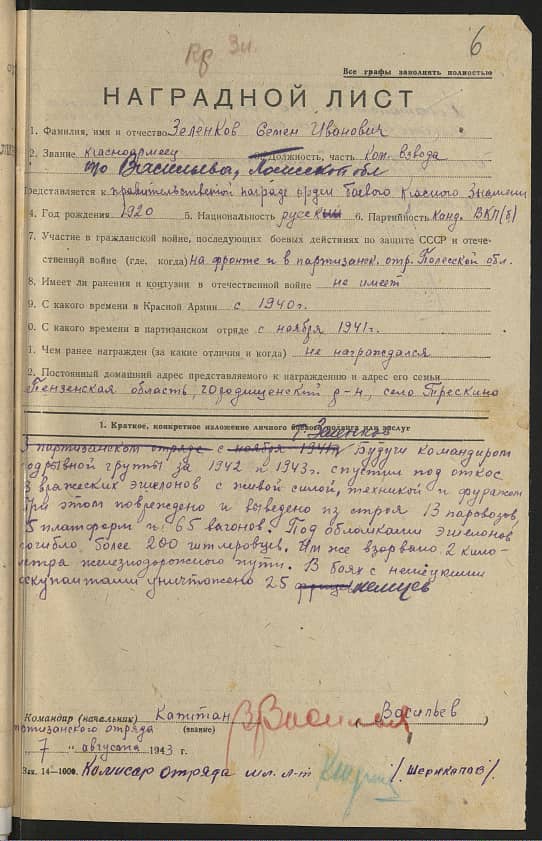 6
Все графы заполнять полностью
НАГРАДНОЙ ЛИСТ
1. Фамилия, имя и отчество Зеленков Семен Иванович
2. Звание красноармеец Должность, часть Ком. взвода
по Васильева, Полесской обл
Представляется к правительственной награде орден боевого Красного Знамени
4. Год рождения 1920 5. Национальность русск 6. Партийность Канд. ВКП(б)
7. Участие в гражданской войне, последующих боевых действиях по защите СССР и отече-
ственной войне (где, когда) на фронте и в партизанск. отр. Полесской обл.
8. Имеет ли ранения и контузии в отечественной войне не имеет
9. С какого времени в Красной Армии с 1940г.
0. С какого времени в партизанском отряде с ноября 1941г.
1. Чем ранее награжден (за какие отличия и когда) не награждался
2. Постоянный домашний адрес представляемого к награждению и адрес его семьи
Пензенская область, городищенский р-н, село Трескино
1. Краткое, конкретное изложение личного боевого подвига или заслуг
т. Зеленков
партизанском отряде с ноября 1941г Будучи командиром
подрывной группы за 1942 и 1943г. спустил под откос
13 вражеских эшелонов с живой силой, техникой и фуражом
При этом повреждено и выведено из строя 13 паровозов,
5 платформ и 65 вагонов. Под обломками эшелонов
погибло более 200 гитлеровцев. Им же взорвано 2 кило-
метра железнодорожного пути. В боях с немецкими
оккупантами уничтожено 25 немцев
Командир (начальник) Капитан Васильев
партизанского отряда (звание)
7 августа 1943 г.
Зак. 14—1000. Комиссар отряда мл. л-т /Шерикапов/